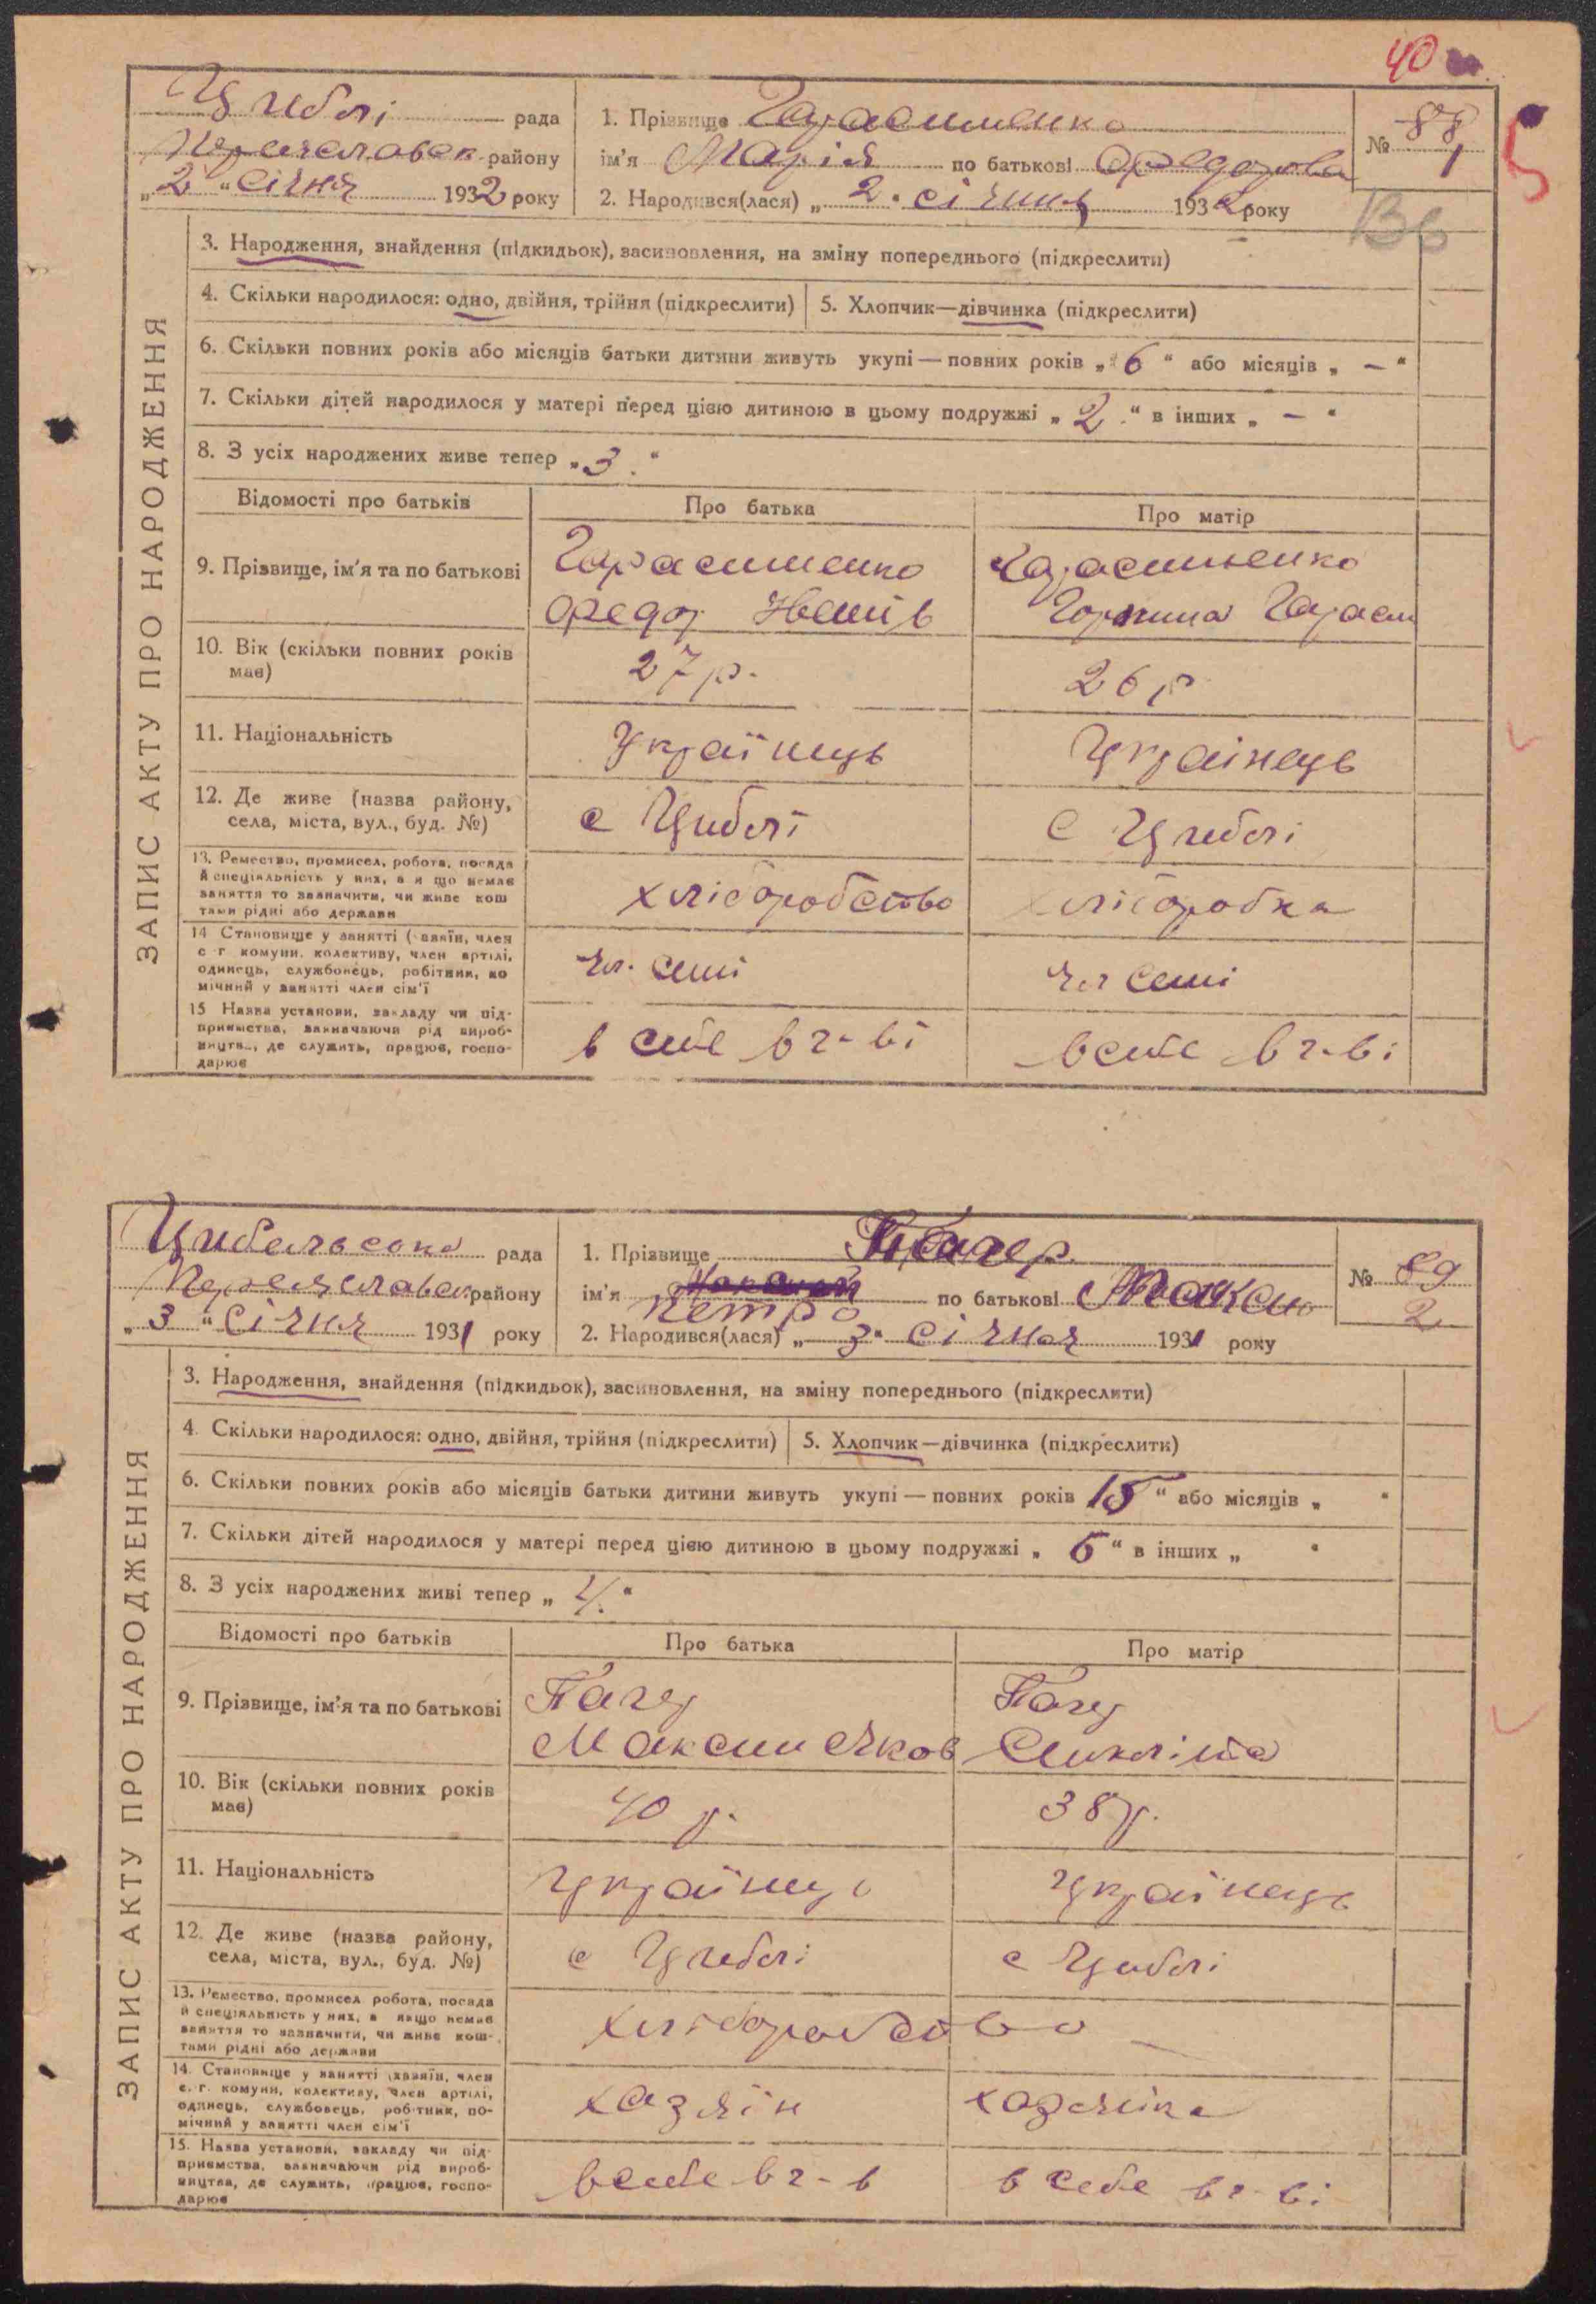 40
Циблі рада
Переяславськ району
„2“ січня 1932 року
1. Прізвище Гарасименко
ім'я Марія по батькові Федорова
2. Народився(лася) „2“ січня 1932 року
№ 88
1
5
ЗАПИС АКТУ ПРО НАРОДЖЕННЯ
3. Народження, знайдення (підкидьок), засиновлення, на зміну попереднього (підкреслити)
4. Скільки народилося: одно, двійня, трійня (підкреслити) 5. Хлопчик—дівчинка (підкреслити)
6. Скільки повних років або місяців батьки дитини живуть укупі — повних років „6“ або місяців „ – “
7. Скільки дітей народилося у матері перед цією дитиною в цьому подружжі „2“ в інших „ – “
8. З усіх народжених живе тепер „3“
Відомості про батьків Про батька Про матір
9. Прізвище, ім'я та по батькові Гарасименко Гарасименко
Федор Гарасим
10. Вік (скільки повних років має) 27 р. 26 р
11. Національність Українець Українець
12. Де живе (назва району, села, міста, вул., буд. №) с Циблі с Циблі
13. Ремество, промисел, робота, посада й спеціяльність у них, а якщо немає заняття то зазначити, чи живе коштами рідні або держави хліборобство хліборобка
14 Становище у занятті (хазяїн, член с г. комуни, колективу, член артілі, одинець, службовець, робітник, помічний у занятті член сім'ї чл. семі чл семі
15 Назва установи, закладу чи підприємства, зазначаючи рід виробництва, де служить, працює, господарює в себе в г-ві в себе в г-ві
Цибельська рада
Переяславськ району
„3“ Січня 1931 року
1. Прізвище
ім'я Петро по батькові Максим
2. Народився(лася) „3“ січня 1931 року
№ 89
2
ЗАПИС АКТУ ПРО НАРОДЖЕННЯ
3. Народження, знайдення (підкидьок), засиновлення, на зміну попереднього (підкреслити)
4. Скільки народилося: одно, двійня, трійня (підкреслити) 5. Хлопчик—дівчинка (підкреслити)
6. Скільки повних років або місяців батьки дитини живуть укупі — повних років 15“ або місяців „ “
7. Скільки дітей народилося у матері перед цією дитиною в цьому подружжі „6“ в інших „ “
8. З усіх народжених живі тепер „4“
Відомості про батьків Про батька Про матір
9. Прізвище, ім'я та по батькові
Максим Яков
10. Вік (скільки повних років має) 40 р. 38 р.
11. Національність Українець Українець
12. Де живе (назва району, села, міста, вул., буд. №) с Циблі с Циблі
13. Ремество, промисел робота, посада й спеціяльність у них, а якщо немає заняття то зазначити, чи живе коштами рідні або держави хліборобство
14. Становище у занятті (хазяїн, член с. г. комуни, колективу, член артілі, одинець, службовець, робітник, помічний у занятті член сім'ї хазяїн хазяйка
15. Назва установи, закладу чи підприємства, зазначаючи рід виробництва, де служить, працює, господарює в себе в г-в в себе в г-ві